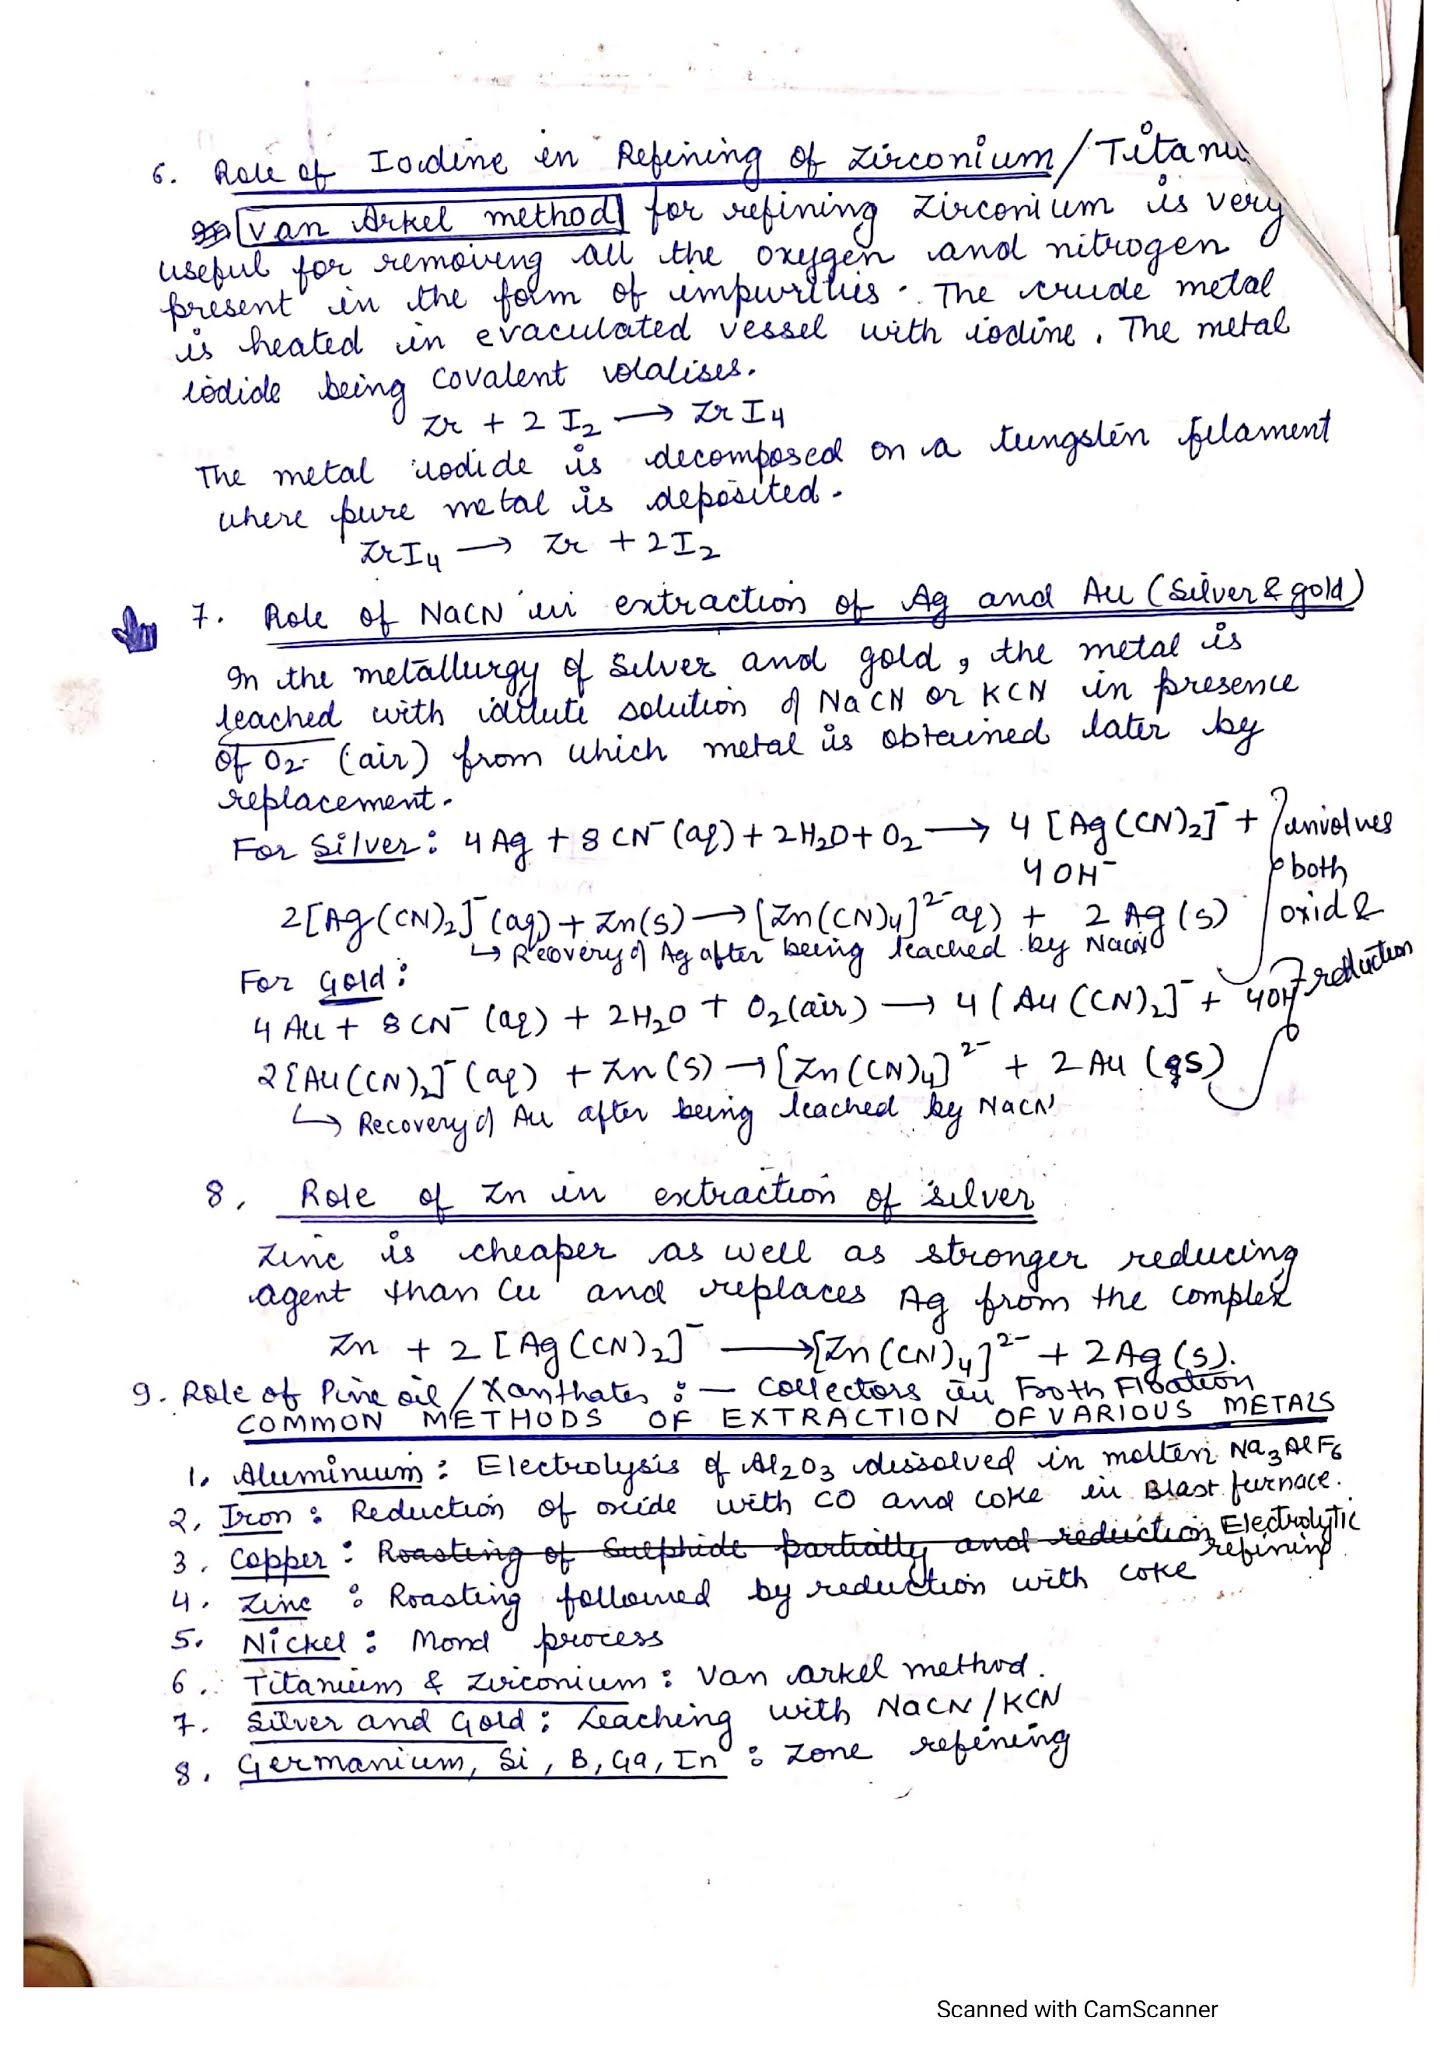 6. Role of Iodine in Refining of Zirconium/Titanu
van Arkel method for refining Zirconium is very
useful for removing all the oxygen and nitrogen
present in the form of impurities. The crude metal
is heated in evaculated vessel with iodine. The metal
iodide being covalent volalises.
Zr + 2 I₂ ⟶ ZrI₄
The metal iodide is decomposed on a tungsten filament
where pure metal is deposited.
ZrI₄ ⟶ Zr + 2I₂
7. Role of NaCN in extraction of Ag and Au (Silver & gold)
In the metallurgy of Silver and gold, the metal is
leached with dilute solution of NaCN or KCN in presence
of O₂ (air) from which metal is obtained later by
replacement.
For Silver: 4Ag + 8CN⁻(aq) + 2H₂O + O₂ ⟶ 4[Ag(CN)₂]⁻ +
4OH⁻
involves
both
oxid &
reduction
2[Ag(CN)₂]⁻(aq) + Zn(s) ⟶ [Zn(CN)₄]²⁻aq) + 2Ag(s)
↳ Recovery of Ag after being leached by NaCN
For Gold:
4Au + 8CN⁻(aq) + 2H₂O + O₂(air) ⟶ 4(Au(CN)₂]⁻ + 4OH
2[Au(CN)₂]⁻(aq) + Zn(s) ⟶ [Zn(CN)₄]²⁻ + 2Au (s)
↳ Recovery of Au after being leached by NaCN
8. Role of Zn in extraction of silver
Zinc is cheaper as well as stronger reducing
agent than Cu and replaces Ag from the complex
Zn + 2[Ag(CN)₂]⁻ ⟶ [Zn(CN)₄]²⁻ + 2Ag(s).
9. Role of Pine oil/Xanthates :— Collectors in Frooth Floation
COMMON METHODS OF EXTRACTION OF VARIOUS METALS
1. Aluminium: Electrolysis of Al₂O₃ dissolved in molten Na₃AlF₆
2. Iron: Reduction of oxide with CO and coke in Blast furnace.
3. Copper: Roasting of Sulphide partially and reduction Electrolytic
refining
4. Zinc: Roasting followed by reduction with coke
5. Nickel: Mond process
6. Titanium & Zirconium: Van arkel method.
7. Silver and Gold: Leaching with NaCN/KCN
8. Germanium, Si, B, Ga, In: Zone refining
Scanned with CamScanner